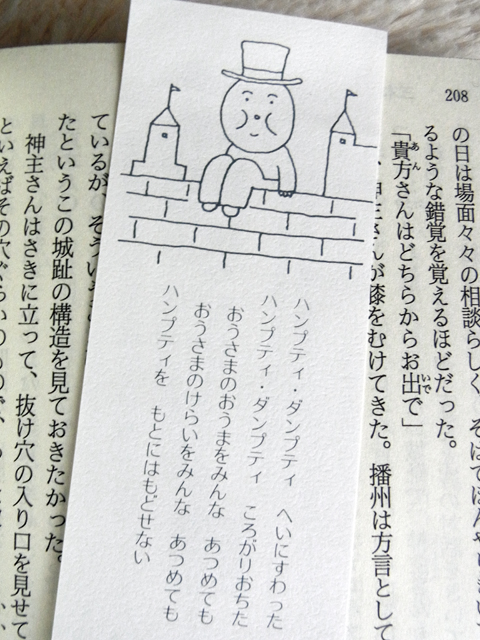 208
の日は場面々々の相談らしく、
るような錯覚を覚えるほどだった。
「貴方さんはどちらからお出で」
さんが膝をむけてきた。播州は方言として
ハンプティ・ダンプティ　へいにすわった
ハンプティ・ダンプティ　ころがりおちた
おうさまのおうまをみんな　あつめても
おうさまのけらいをみんな　あつめても
ハンプティを　もとにはもどせない
ているが、
たというこの城趾の構造を見ておきたかった。
神主さんはさきに立って、抜け穴の入り口を見せて
といえばその穴ぐらいのもので、